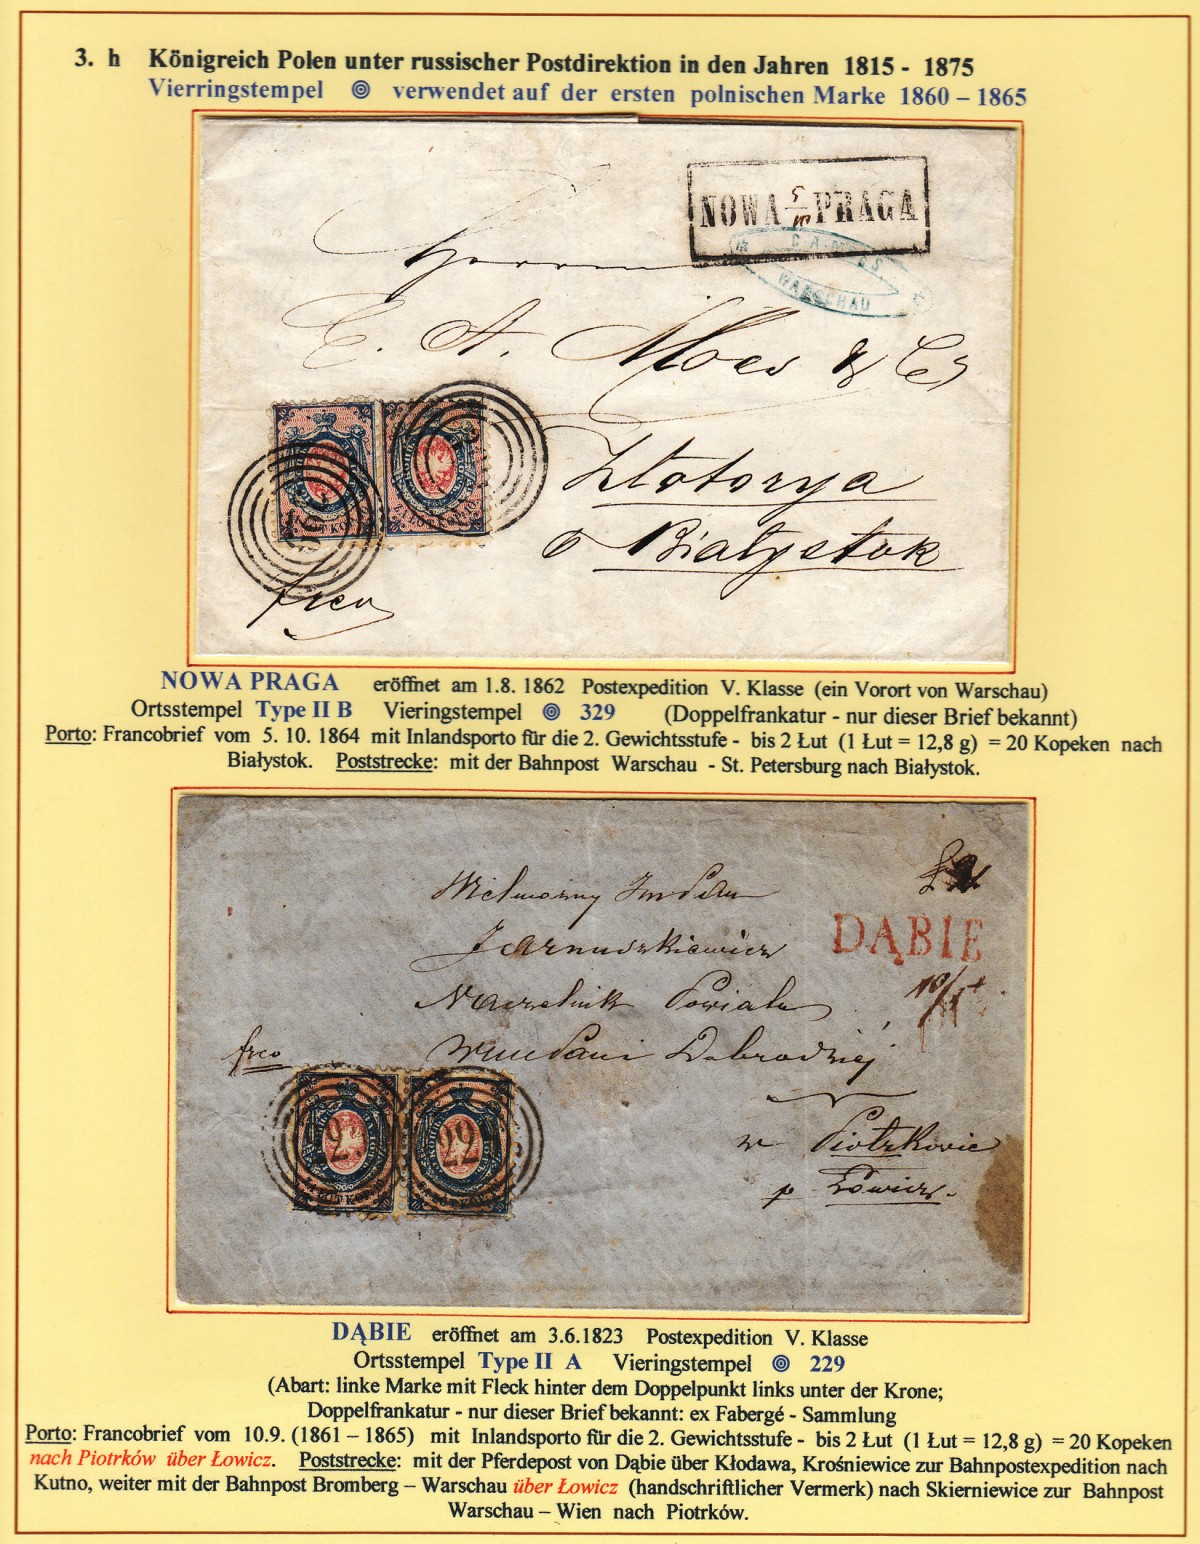 3. h Königreich Polen unter russischer Postdirektion in den Jahren 1815 - 1875
Vierringstempel verwendet auf der ersten polnischen Marke 1860 – 1865
NOWA 5/10 PRAGA
C. A. MOES
WARSCHAU
Herrn
C. A. Moes & Co
Złotorya
Białystok
frco
NOWA PRAGA eröffnet am 1.8. 1862 Postexpedition V. Klasse (ein Vorort von Warschau)
Ortsstempel Type II B Vieringstempel 329 (Doppelfrankatur - nur dieser Brief bekannt)
Porto: Francobrief vom 5. 10. 1864 mit Inlandsporto für die 2. Gewichtsstufe - bis 2 Łut (1 Łut = 12,8 g) = 20 Kopeken nach
Białystok. Poststrecke: mit der Bahnpost Warschau - St. Petersburg nach Białystok.
Wielmożny
Jarnuszkiewicz
DĄBIE
Naczelnik Powiatu
10/9
frco
Dobrodziej
229
w Piotrkowie
p Łowicz.
DĄBIE eröffnet am 3.6.1823 Postexpedition V. Klasse
Ortsstempel Type II A Vieringstempel 229
(Abart: linke Marke mit Fleck hinter dem Doppelpunkt links unter der Krone;
Doppelfrankatur - nur dieser Brief bekannt: ex Fabergé - Sammlung
Porto: Francobrief vom 10.9. (1861 – 1865) mit Inlandsporto für die 2. Gewichtsstufe - bis 2 Łut (1 Łut = 12,8 g) = 20 Kopeken
nach Piotrków über Łowicz. Poststrecke: mit der Pferdepost von Dąbie über Kłodawa, Krośniewice zur Bahnpostexpedition nach
Kutno, weiter mit der Bahnpost Bromberg – Warschau über Łowicz (handschriftlicher Vermerk) nach Skierniewice zur Bahnpost
Warschau – Wien nach Piotrków.